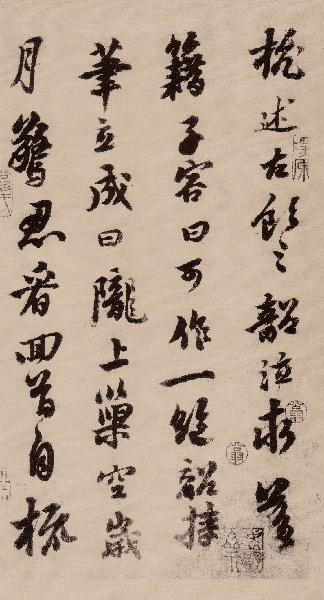 杭述古飲之韶泣求落
籍子容曰可作一絕韶援
筆立成曰隴上巢空歲
月驚忍看回首自梳